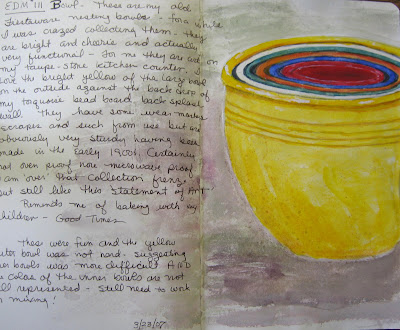 EDM 111 Bowl - These are my old
Fiestaware nesting bowls - for a while
I was crazed collecting them - they
are bright and cheerie and actually
very functional - For me they are out on
my taupe-stone kitchen counter
the bright yellow of the large bowl
on the outside against the back drop of
my toquose bead board, back splash
wall. They have some wear marks
scrapes and such from use but are
obviously very sturdy having been
made in the early 1900s, Certainly
not oven proof nor microwave proof
am over that collection frenzy
but still like this Statement of Art
Reminds me of baking with my
children - Good Times
These were fun and the yellow
outer bowl was not hard - suggesting
inner bowls was more difficult AND
the colors of the inner bowls are not
well represented - still need to work
on mixing!
3/23/07